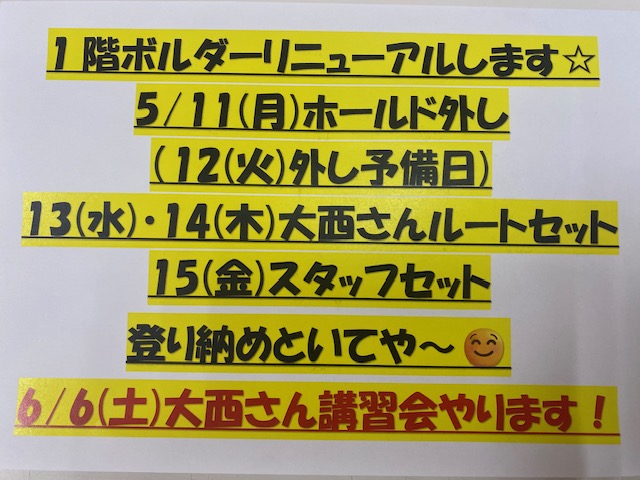 1階ボルダーリニューアルします☆
5/11(月)ホールド外し
(12(火)外し予備日)
13(水)・14(木)大西さんルートセット
15(金)スタッフセット
登り納めといてや～😊
6/6(土)大西さん講習会やります！